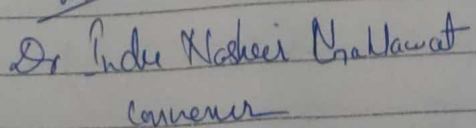 Dr Indu Nashier Gahlawat
Convenor